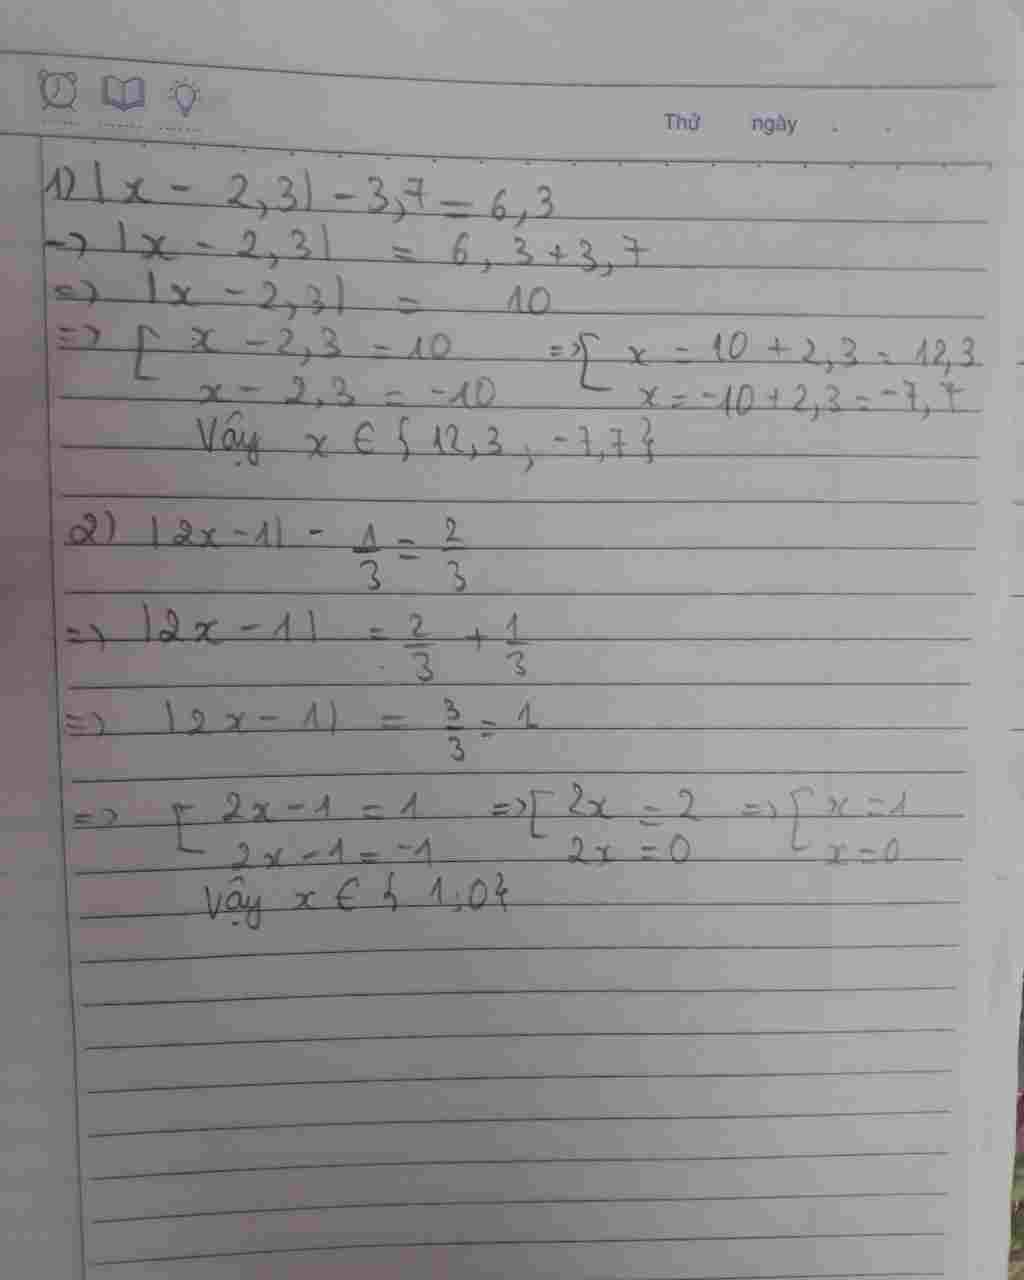 Thứ ngày . .
1) |x - 2,3| - 3,7 = 6,3
=> |x - 2,3| = 6,3 + 3,7
=> |x - 2,3| = 10
=> [ x - 2,3 = 10 => [ x = 10 + 2,3 = 12,3
x - 2,3 = -10 x = -10 + 2,3 = -7,7
Vậy x ∈ { 12,3 ; -7,7}
2) |2x - 1| - 1/3 = 2/3
=> |2x - 1| = 2/3 + 1/3
=> |2x - 1| = 3/3 = 1
=> [ 2x - 1 = 1 => [ 2x = 2 => [ x = 1
2x - 1 = -1 2x = 0 x = 0
Vậy x ∈ { 1;0}